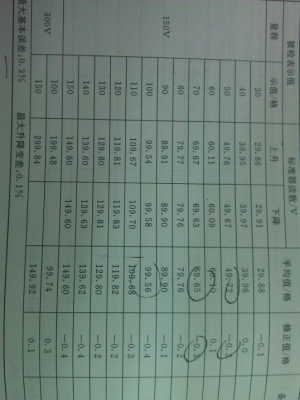 被检表示值 标准器读数/V 平均值/格 修正值/格
量程 示值/格 上升 下降
30 29.86 29.91 29.88 -0.1
40 39.95 39.97 39.96 0.0
50 49.76 49.67 49.72 -0.3
60 60.11 60.09 60.10 0.1
70 69.67 69.63 69.65
80 79.77 79.76 79.76 -0.2
150V 90 89.91 89.90 89.90 -0.1
100 99.54 99.58 99.56 -0.4
110 109.67 109.70 109.68 -0.3
120 119.81 119.83 119.82 -0.2
130 129.80 129.81 129.80 -0.2
140 139.60 139.63 139.62 -0.4
150 149.60 149.60 149.60 -0.4
300V 100 199.48 99.74 0.3
150 299.84 149.92 0.1
最大基本误差:0.3% 最大升降变差:0.1%